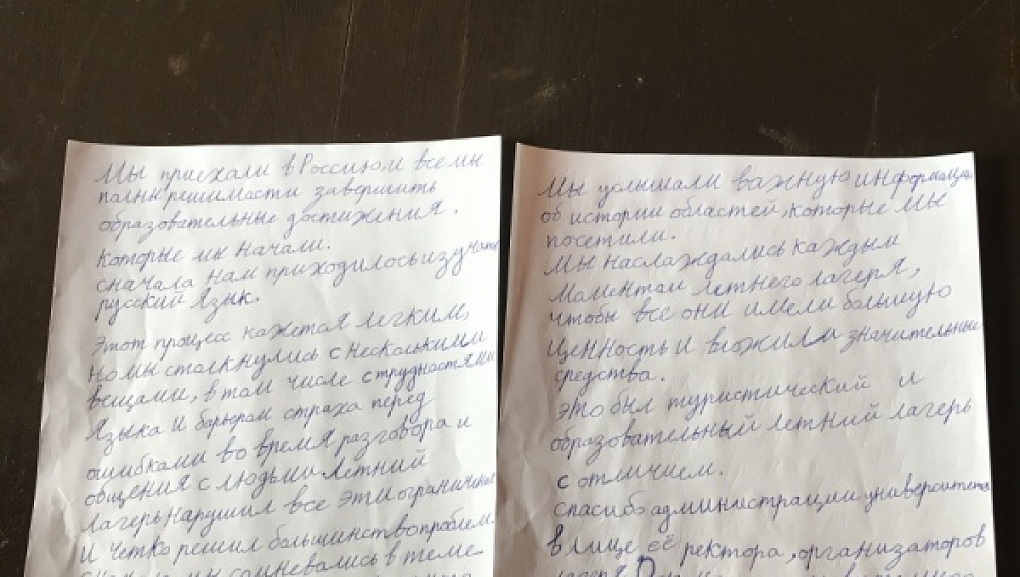 Мы приехали в Россию, и все мы
полны решимости завершить
образовательные достижения.
которые мы начали.
сначала нам приходилось изучать
русский язык.
Этот процесс кажется легким,
но мы столкнулись с несколькими
вещами, в том числе с трудностями
языка и барьером страха перед
ошибками во время разговора и
общения с людьми. Летний
лагерь нарушил все эти ограничения
и четко решил большинство проблем.
мы сомневались в теме
Мы услышали важную информацию
об истории областей, которые мы
посетили.
Мы наслаждались каждым
моментом летнего лагеря,
чтобы все они имели большую
ценность и вложили значительные
средства.
это был туристический и
образовательный летний лагерь
с отличием.
спасибо администрации университета
в лице её ректора, организаторов